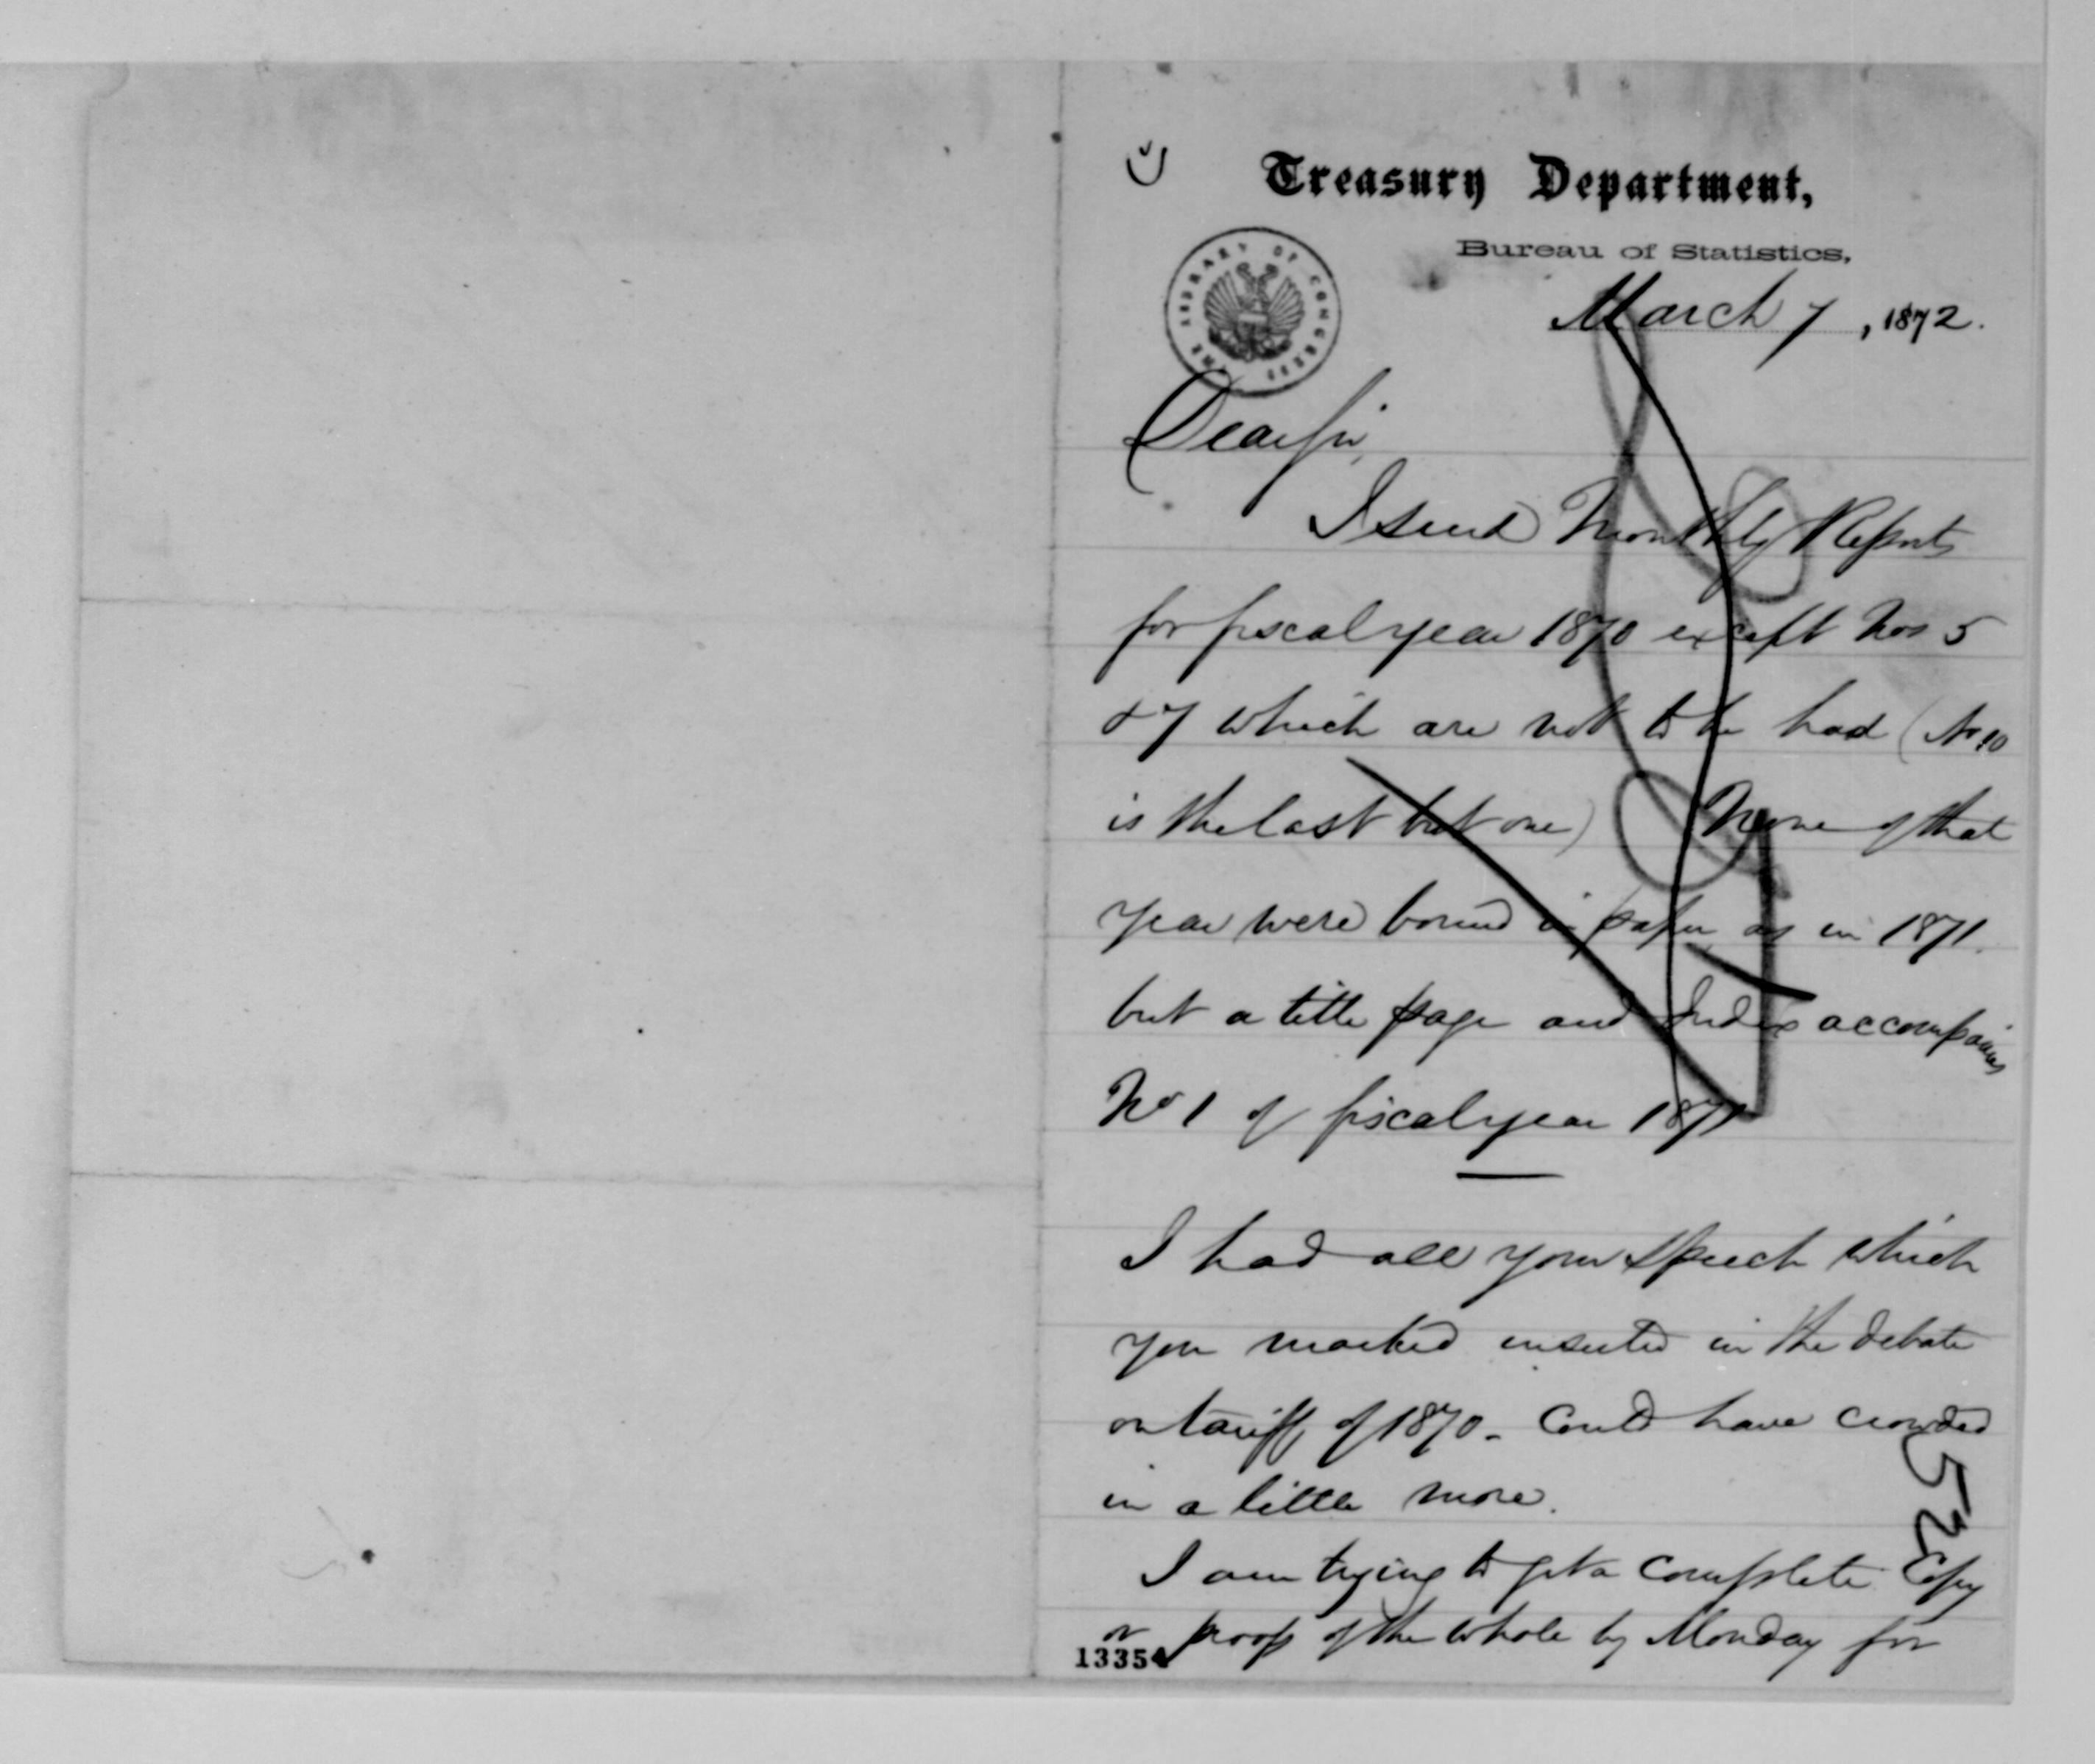 Treasury Department,
Bureau of Statistics,
March 7, 1872.
THE LIBRARY OF CONGRESS
Dear Sir,
I send Monthly Reports
for fiscal year 1870 except Nos 5
& 7 which are not to be had (No 10
is the last but one) None of that
year were bound in paper as in 1871.
but a title page and Index accompanies
No 1 of fiscal year 1871
I had all your speech which
you marked inserted in the debate
on tariff of 1870 - Could have crowded
in a little more.
I am trying to get a complete copy
or proof of the whole by Monday for
52
13354